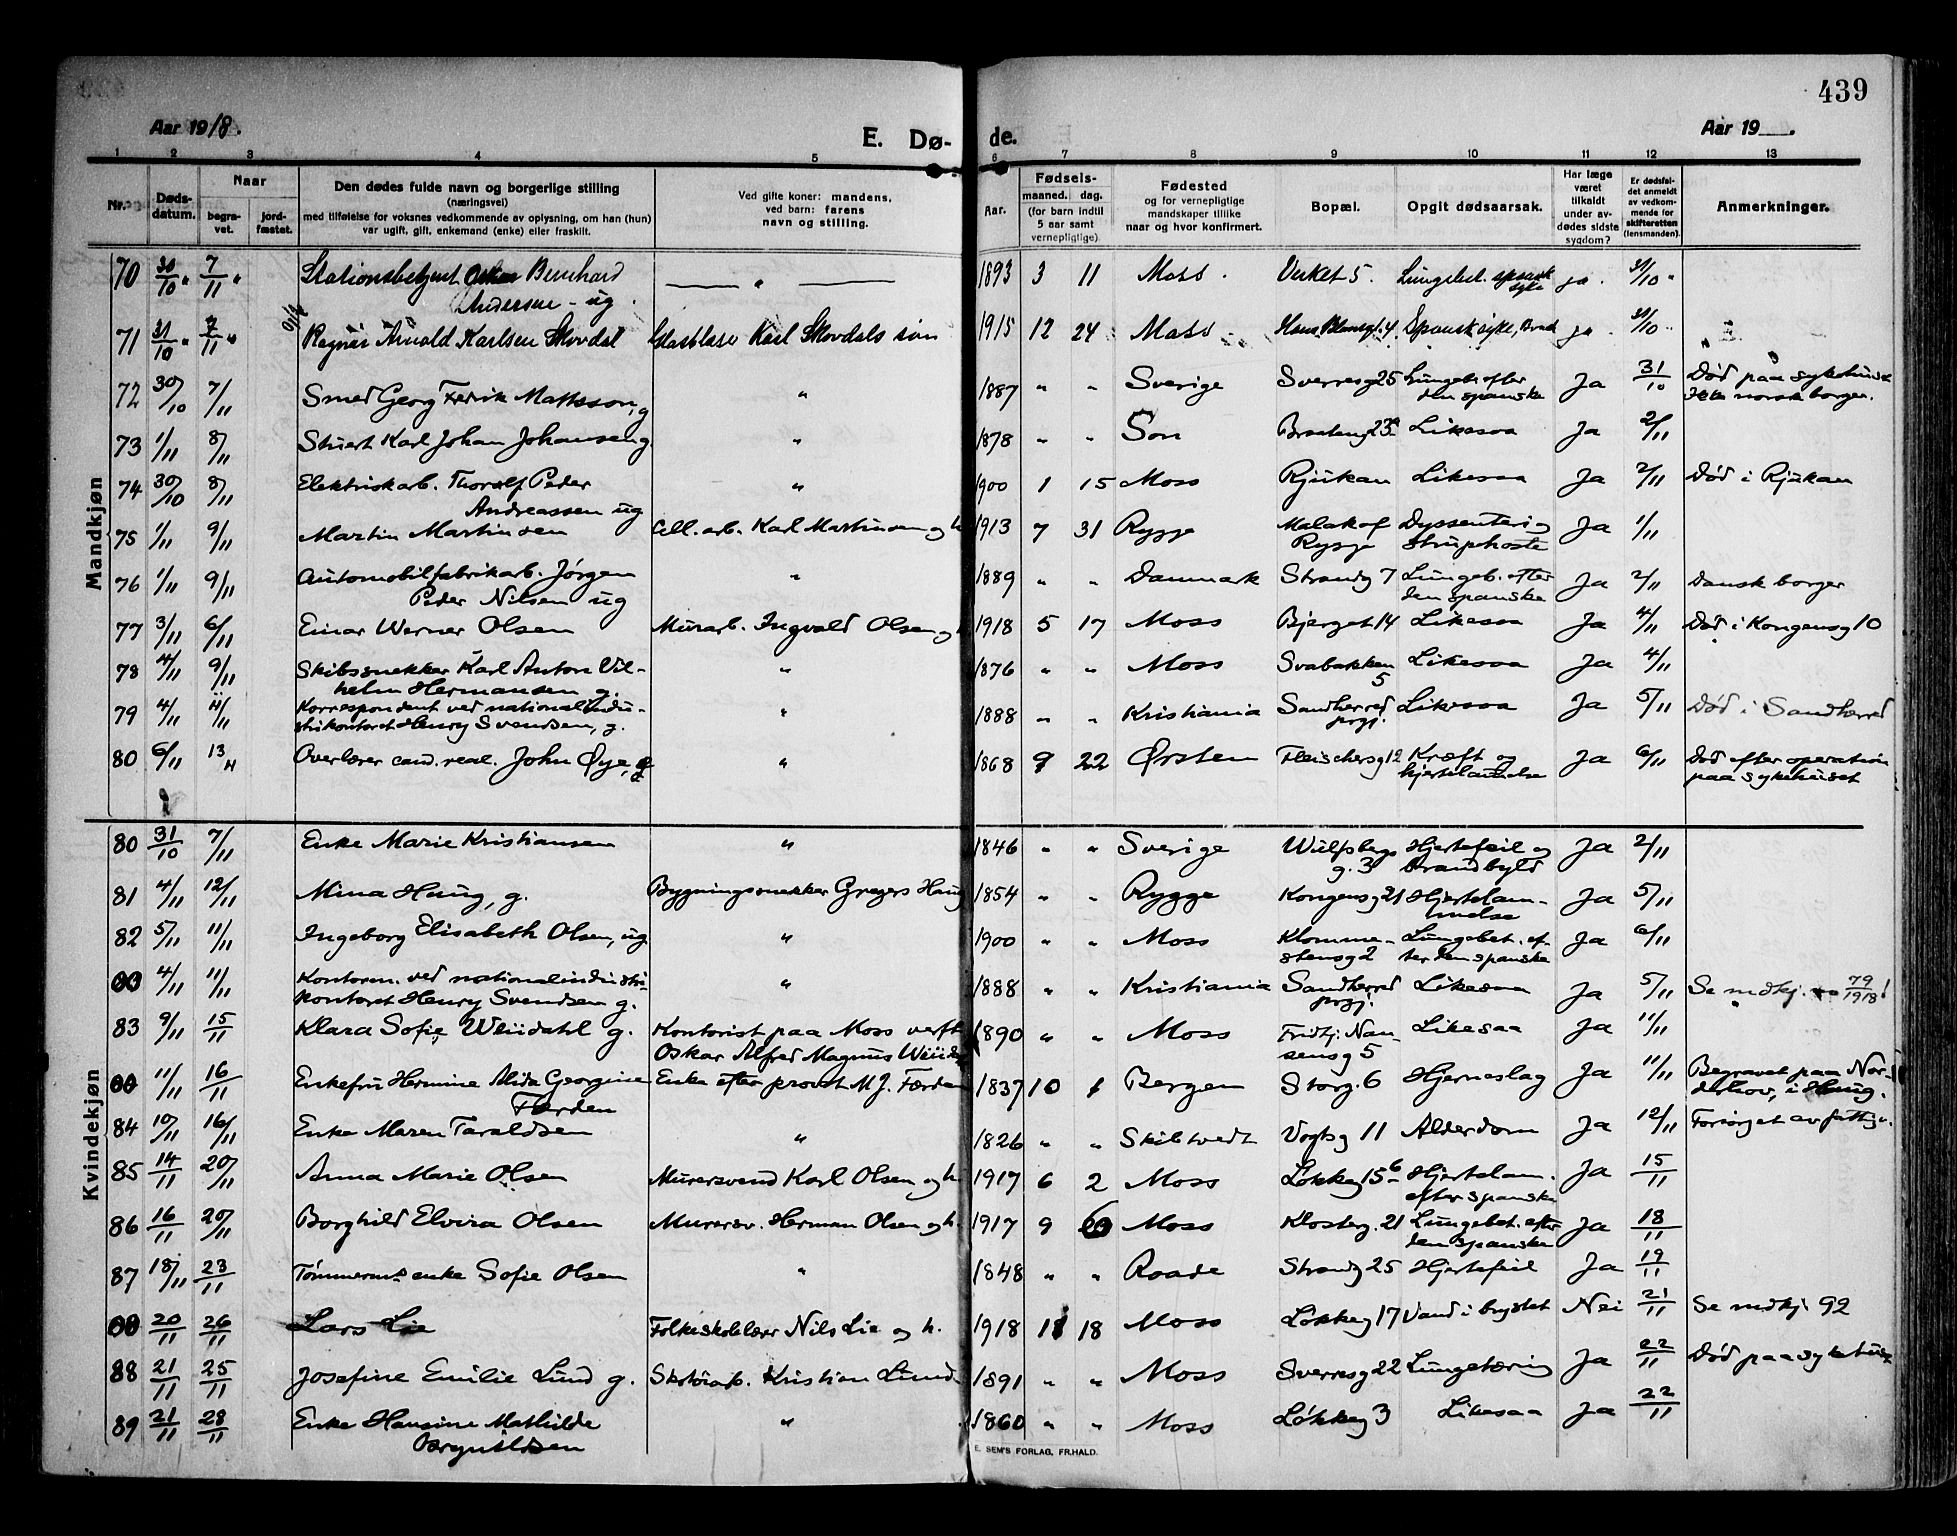 439
Aar 1918.
E. Dø-
de.
Aar 19 .
1 2 3 4 5 6 7 8 9 10 11 12 13
Nr.
Døds-
datum.
Naar
begra-
vet.
jord-
fæstet.
Den dødes fulde navn og borgerlige stilling
(næringsvei)
med tilføielse for voksnes vedkommende av oplysning, om han (hun)
var ugift, gift, enkemand (enke) eller fraskilt.
Ved gifte koner: mandens,
ved barn: farens
navn og stilling.
Aar.
Fødsels-
maaned. dag.
(for barn indtil
5 aar samt
vernepligtige).
Fødested
og for vernepligtige
mandskaper tillike
naar og hvor konfirmert.
Bopæl.
Opgit dødsaarsak.
Har læge
været
tilkaldt
under av-
dødes sidste
sygdom?
Er dødsfal-
det anmeldt
av vedkom-
mende for
skifteretten
(lensmanden).
Anmerkninger.
Mandkjøn
70 30/10 " 7/11 " Stationsbetjent Oskar Bernhard — " — 1893 3 11 Moss. Verket 5. Lungebet. spansk ja. 31/10 "
Andersen - ug. syke
71 31/10 " 7/11 " Ragnar Arnold Karlsen Skovdal Glasblæser Karl Skovdals søn 1915 12 24 Moss. Hans Blomsgt. 4 Spansk syke, ja. 31/10 "
72 30/10 7/11 Smed Georg Fredrik Mattsson, g " 1887 " " Sverige Sverresg 25 Lungeb. efter Ja 31/10 Død paa sykehuset
den spanske Ikke norsk borger.
73 1/11 8/11 Stuert Karl Johan Johansen g " 1878 " " Son 23a Likesaa Ja 2/11
74 30/10 8/11 Elektriskarb. Thoralf Peder " 1900 1 15 Moss Rjukan Likesaa Ja 2/11 Død i Rjukan
Andreassen ug
75 1/11 9/11 Martin Martinsen Cell. arb. Karl Martinsen og h 1913 7 31 Rygge Malakof Dyssenteri og Ja 1/11
Rygge strupehoste
76 1/11 9/11 Automobilfabrikarb. Jørgen " 1889 " " Danmark Strandg 7 Lungeb. efter Ja 2/11 Dansk borger
Peder Nilsen ug den spanske
77 3/11 6/11 Einar Werner Olsen Murarb. Ingvald Olsen og h 1918 5 17 Moss Bjerget 14 Likesaa Ja 4/11 Død i Kongensg 10
78 4/11 9/11 Skibssnekker Karl Anton Vil- " 1876 " " Moss Svabakken Likesaa Ja 4/11
helm Hermansen g. 5
79 4/11 11/11 Korrespondent ved nationalindu- " 1888 " " Kristiania Sandherred Likesaa Ja 5/11 Død i Sandherred
strikontoret Henry Svendsen, g. prgj.
80 6/11 13/11 Overlærer cand. real. John Øye, g " 1868 9 22 Ørsten Fleischersg 12 Kræft og Ja 6/11 Død efter operation
hjertelammelse paa sykehuset
Kvindekjøn
80 31/10 7/11 Enke Marie Kristiansen " 1846 " " Sverige Wulfsbergs Hjertefeil og Ja 2/11
g. 3 brandbyld
81 4/11 12/11 Mina Haug, g. Bygningssnekker Gregers Haug 1854 " " Rygge Kongensg 21 Hjertelam- Ja 5/11
melse
82 5/11 11/11 Ingeborg Elisabeth Olsen, ug " 1900 " " Moss Klomme- Lungebet. ef- Ja 6/11
stensg 2 ter den spanske
4/11 11/11 Kontorm. ved nationalindustri- " 1888 " " Kristiania Sandherred Likesaa Ja 5/11 Se mdkj. 79/1918!
kontoret Henry Svendsen g. prgj.
83 9/11 15/11 Klara Sofie Wiiidahl g. Kontorist paa Moss verft 1890 " " Moss Fridtj. Nan- Likesaa Ja 11/11
Oskar Alfred Magnus sensg 5
11/11 16/11 Enkefru Hermine Alida Georgine Enke efter provst M. J. Færden 1837 10 1 Bergen Storg. 6 Hjerneslag Ja 11/11 Begravet paa Nor-
Færden derhov, i Haug.
84 10/11 16/11 Enke Maren Taraldsen " 1826 " " Skibtvedt Vogtsg 11 Alderdom Ja 12/11 Forsørget av fattigv.
85 14/11 20/11 Anna Marie Olsen Murersvend Karl Olsen og h 1917 6 2 Moss Løkkeg 15b Hjertelam. Ja 15/11
efter spanske
86 16/11 20/11 Borghild Elvira Olsen Murersv. Herman Olsen og h. 1917 9 6 Moss Klosterg. 21 Lungebet. efter Ja 18/11
den spanske
87 18/11 23/11 Tømmerms enke Sofie Olsen " 1848 " " Raade Strandg 25 Hjertefeil Ja 19/11
20/11 26/11 Lars Lie Folkeskolelærer Nils Lie og h. 1918 11 18 Moss Løkkeg 17 Vand i brystet Nei 21/11 Se mdkj 92
88 21/11 25/11 Josefine Emilie Lund g. Skotøiarb. Kristian Lund 1891 " " Moss Sverresg 22 Lungetæring Ja 22/11 Død paa sykehuset
89 21/11 28/11 Enke Hansine Mathilde " 1860 " " Moss Løkkeg 3 Likesaa Ja 22/11
E. SEM'S FORLAG, FR.HALD.